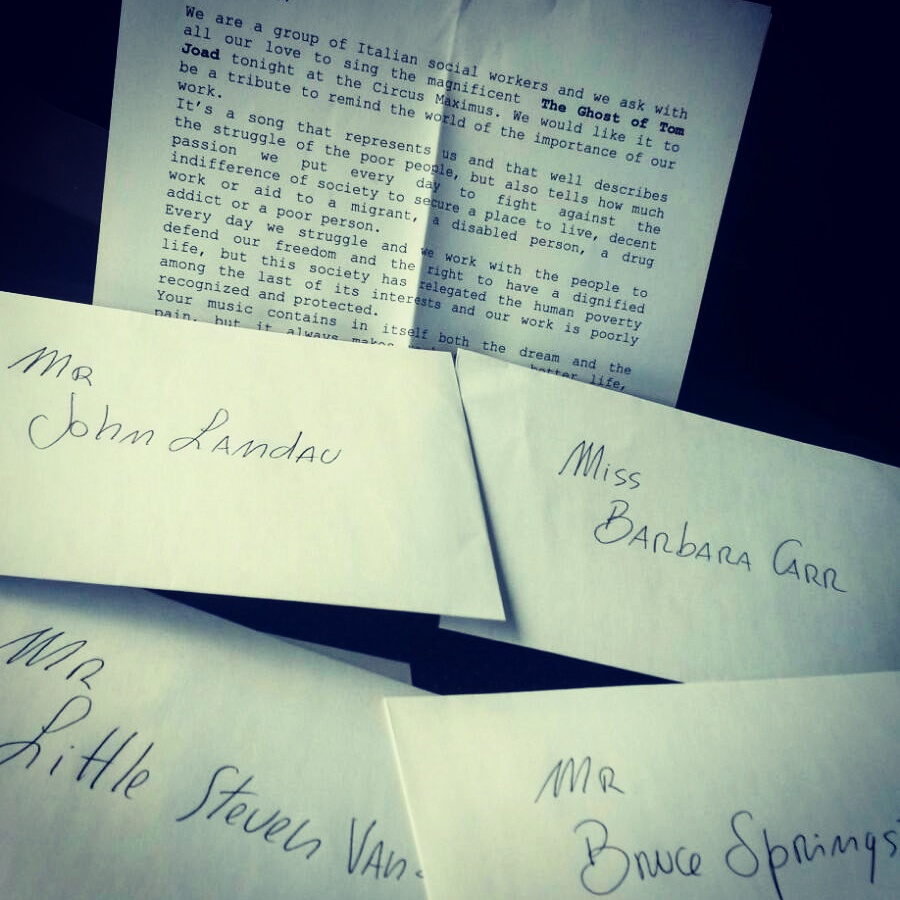 We are a group of Italian social workers and we ask with
all our love to sing the magnificent The Ghost of Tom
Joad tonight at the Circus Maximus. We would like it to
be a tribute to remind the world of the importance of our
work.
It's a song that represents us and that well describes
the struggle of the poor people, but also tells how much
passion we put every day to fight against the
indifference of society to secure a place to live, decent
work or aid to a migrant, a disabled person, a drug
addict or a poor person.
Every day we struggle and we work with the people to
defend our freedom and the right to have a dignified
life, but this society has relegated the human poverty
among the last of its interests and our work is poorly
recognized and protected.
Your music contains in itself both the dream and the
pain, but it always makes better life,
Mr
John Landau
Miss
Barbara Carr
Mr
Little Steven Van
Mr
Bruce Springs